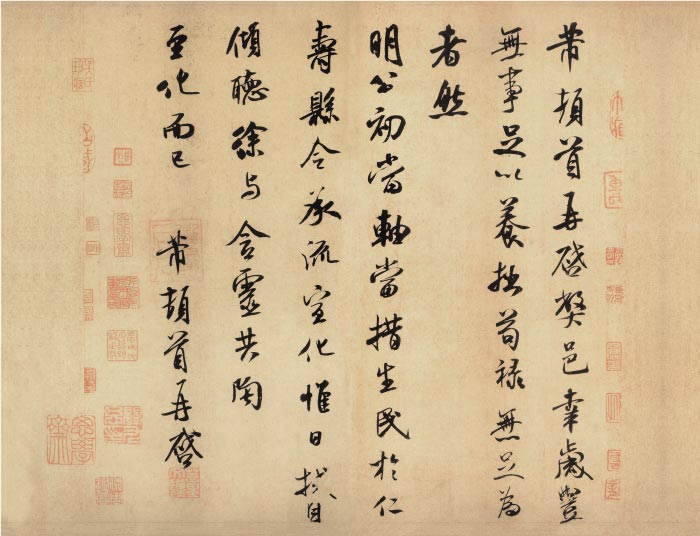 芾頓首再啓弊邑幸歲豐
無事足以養拙苟祿無足爲
者然
明公初當軸當措生民於仁
壽縣令承流宣化惟日拭目
傾聽徐與含靈共陶
至化而已 芾頓首再啓